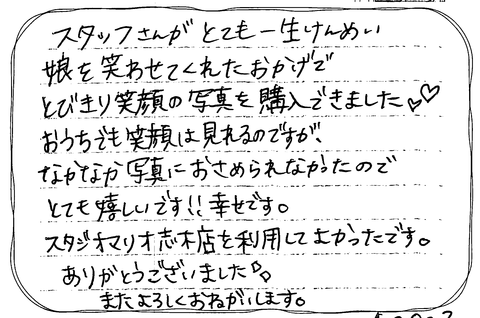 スタッフさんがとても一生けんめい
娘を笑わせてくれたおかげで
とびきり笑顔の写真を購入できました♡♡
おうちでも笑顔は見れるのですが、
なかなか写真におさめられなかったので
とても嬉しいです!!幸せです。
スタジオマリオ志木店を利用してよかったです。
ありがとうございました♡♡
またよろしくおねがいします。